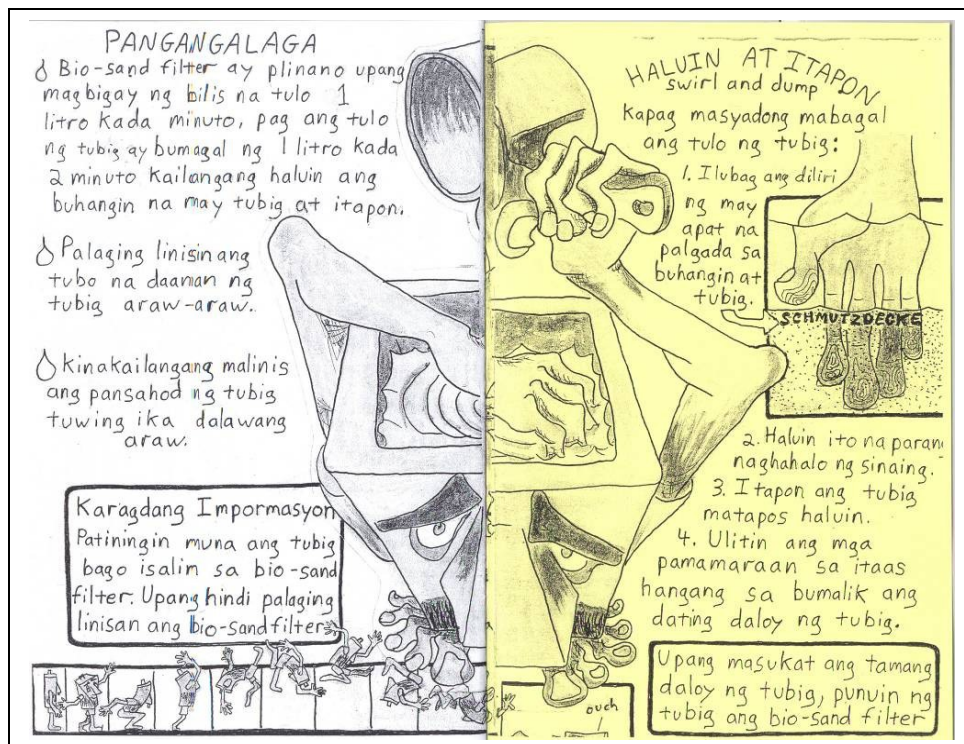 PANGANGALAGA
Bio-sand filter ay plinano upang
magbigay ng bilis na tulo 1
litro kada minuto, pag ang tulo
ng tubig ay bumagal ng 1 litro kada
2 minuto kailangang haluin ang
buhangin na may tubig at itapon.
Palaging linisin ang
tubo na daanan ng
tubig araw-araw.
Kinakailangang malinis
ang pansahod ng tubig
tuwing ika dalawang
araw.
Karagdang Impormasyon
Patiningin muna ang tubig
bago isalin sa bio-sand
filter. Upang hindi palaging
linisan ang bio-sand filter.
HALUIN AT ITAPON
swirl and dump
Kapag masyadong mabagal
ang tulo ng tubig:
1. Ilubag ang diliri
ng may
apat na
palgada sa
buhangin at
tubig.
SCHMUTZDECKE
2. Haluin ito na paran
naghahalo ng sinaing.
3. Itapon ang tubig
matapos haluin.
4. Ulitin ang mga
pamamaraan sa itaas
hangang sa bumalik ang
dating daloy ng tubig.
Upang masukat ang tamang
daloy ng tubig, punuin ng
tubig ang bio-sand filter
ouch